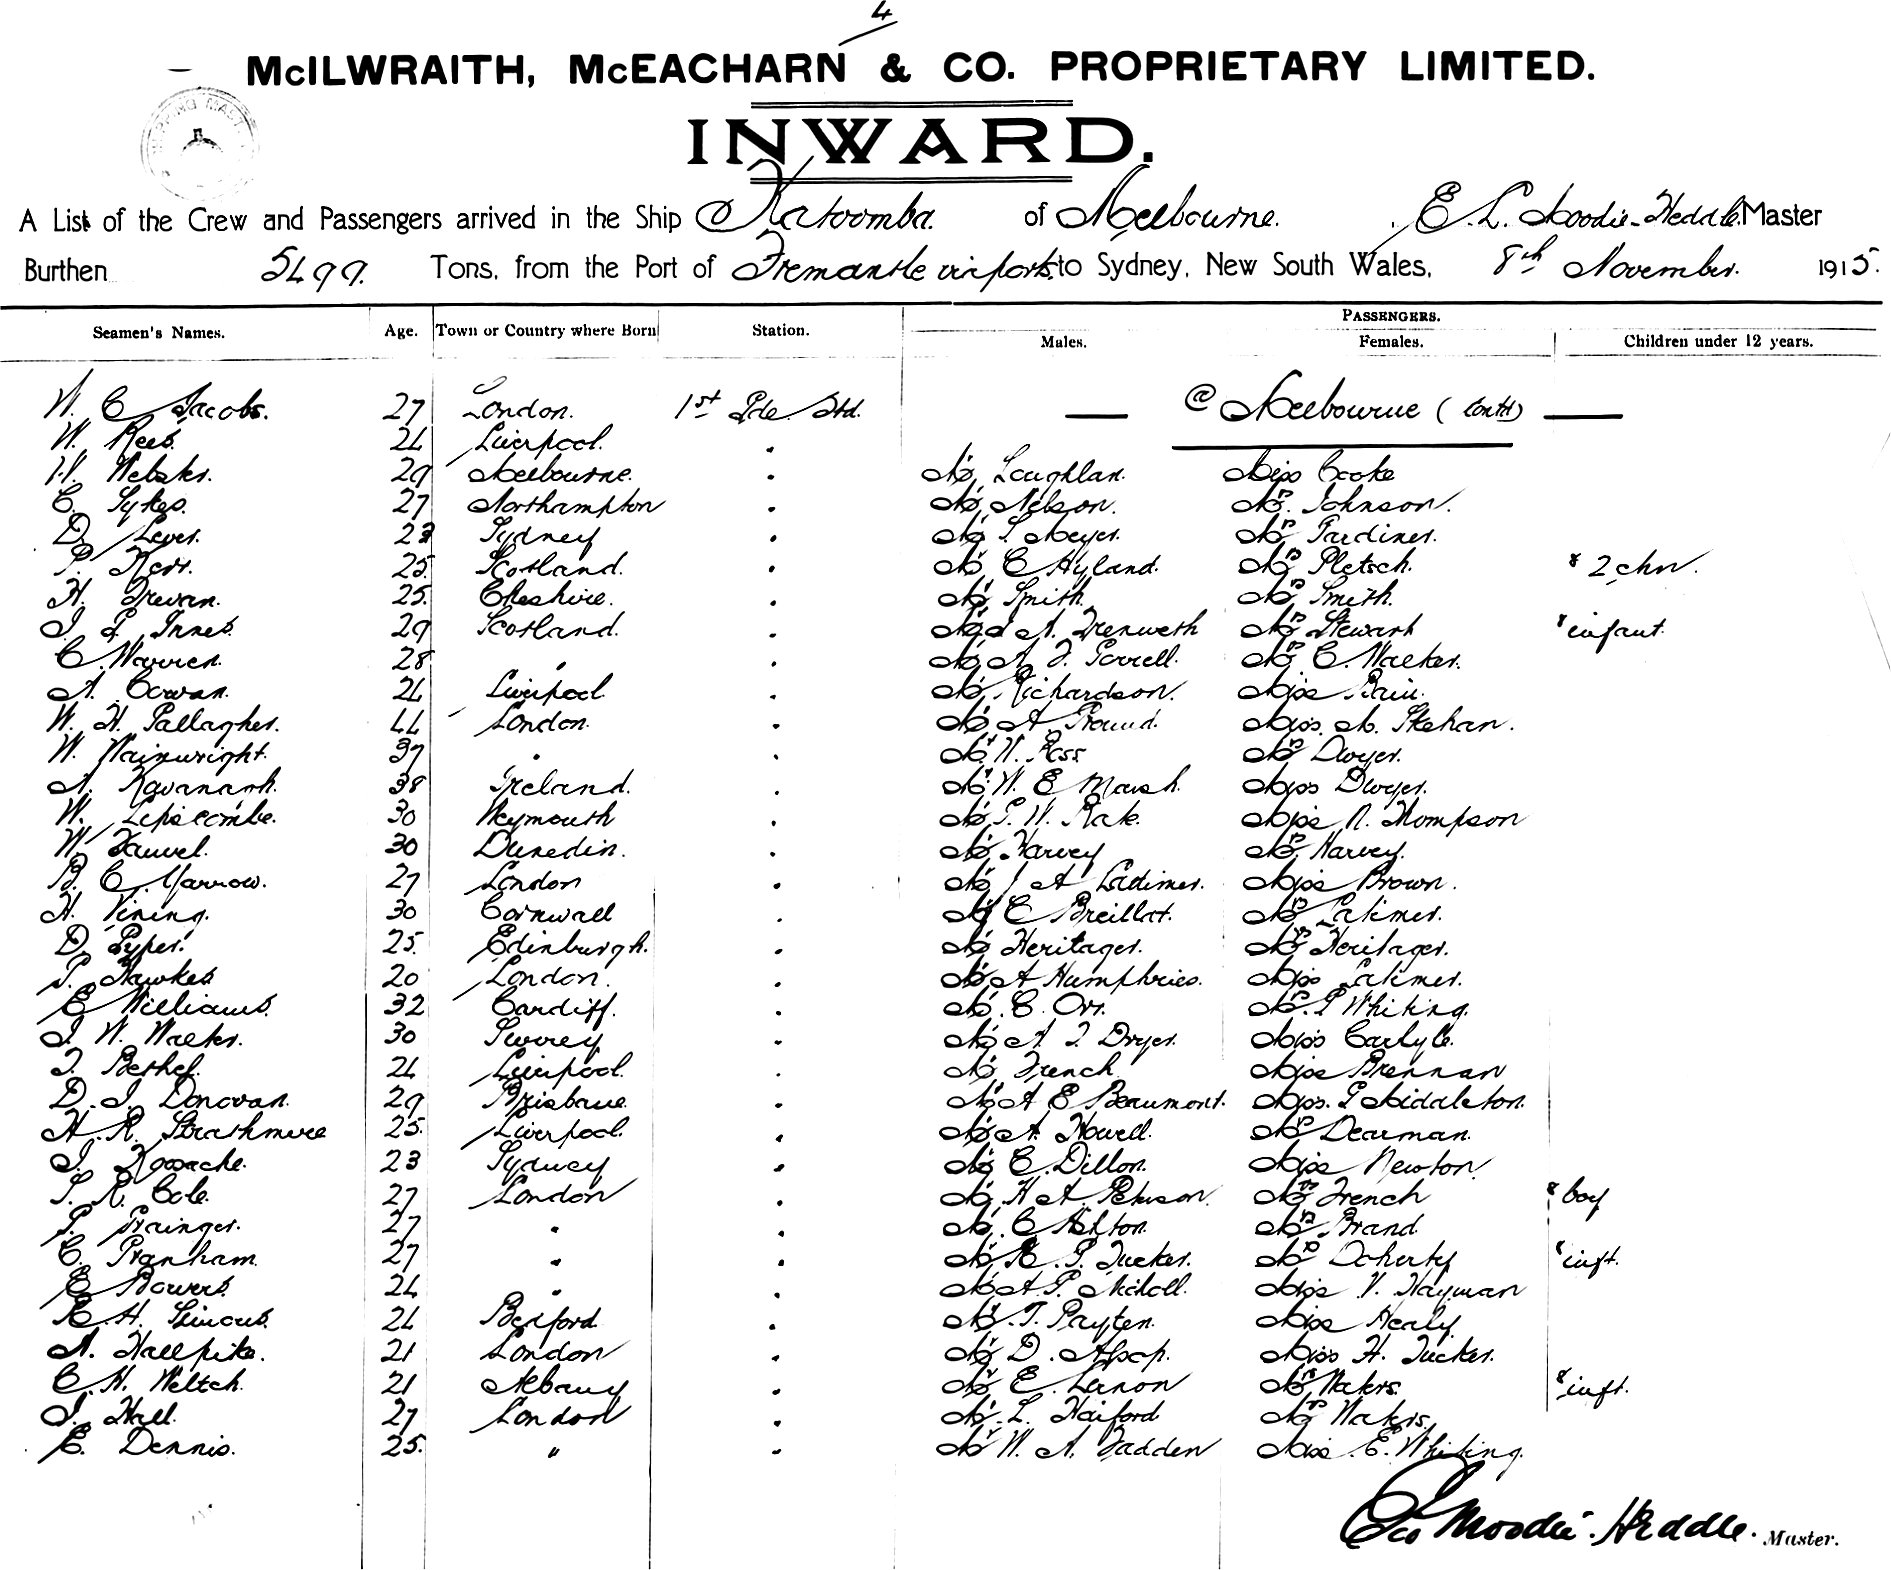 4
McILWRAITH, McEACHARN & CO. PROPRIETARY LIMITED.
INWARD.
A List of the Crew and Passengers arrived in the Ship Katoomba. of Melbourne. Moodie-Heddle. Master
Burthen 5499. Tons, from the Port of Fremantle via ports to Sydney, New South Wales, 8th November. 1915.
PASSENGERS.
Seamen's Names. Age. Town or Country where Born Station. Males. Females. Children under 12 years.
W. C Jacobs. 27 London. 1st Sde Std. @ Melbourne (Contd)
W. Rees. 24 Liverpool.
W. Webster. 29 Melbourne. Mr Loughlan. Miss Cooke
C. Sykes. 27 Northampton Mr Nelson. Mrs Johnson.
D. Lever. 23 Sydney Mr S Meyer. Mrs Gardiner.
P. Kerr. 25. Scotland. Mr C Hyland. Mrs Pletsch. & 2 chn.
H. Trevan. 25. Cheshire. Mr Smith. Mrs Smith.
J. G. Innes. 29 Scotland. A. Trenweth Mrs Stewart & infant.
C. Warren. 28 " Mr A. J. Gorrell. Mrs C. Walker.
A. Cowan. 24 Liverpool Mr Richardson. Miss Bain.
W. H. Gallagher. 44 London. Mr A Miss M. Skehan.
W. Wainwright. 37 " Mr W. Ross Mrs Dwyer.
A. Kavanagh. 38 Ireland. Mr W. E Marsh. Miss Dwyer.
W. Lipscombe. 30 Weymouth Mr G. W. Rate. Miss R. Thompson
W. Fauvel. 30 Dunedin. Mr Harvey Mrs Harvey.
B. C. Yarrow. 27 London Mr J A Latimer. Miss Brown.
H. Vining. 30 Cornwall Mr C Breillat. Mrs Latimer.
D. Pyper. 25. Edinburgh. Mr Heritager. Mrs Heritager.
Hawkes 20 London. Mr A Humphries. Miss Latimer.
E Williams. 32 Cardiff. Mr C. Orr. Whiting.
J. W. Walker. 30 Surrey Mr A. J. Dryer. Miss Carlyle.
J. Bethel. 24 Liverpool. Mr French Miss Brennan
D. J. Donovan. 29 Brisbane Mr A E Beaumont. Miss G Middleton.
H. R. Strathmore 25. Liverpool. Mr A. Howell. Mrs Dearman.
J. 23 Sydney Mr C. Dillon. Miss Newton
S. R. Cole. 27 London Mr H A Peterson. Mrs French & boy
G. Grainger. 27 " Mr C Ashton. Mrs Brand
C. Branham 27 " Mr R. G. Tucker. Mrs Doherty & inft.
E Bowers. 24 " Mr A. P. Nicholl. Miss V. Hayman
E. H. 24 Bedford Mr T. Payten. Miss Healy.
A. Hallpike. 21 London Mr D. Alsop. Miss H. Tucker.
C. H. Weltch. 21 Albany Mr E. Lanon Mrs Waters. & inft.
J. Hall. 27 London Mr L. Haiford Mrs Waters.
E. Dennis. 25. " Mr W. A. Fadden Miss E. Whiting.
Geo Moodie-Heddle. Master.